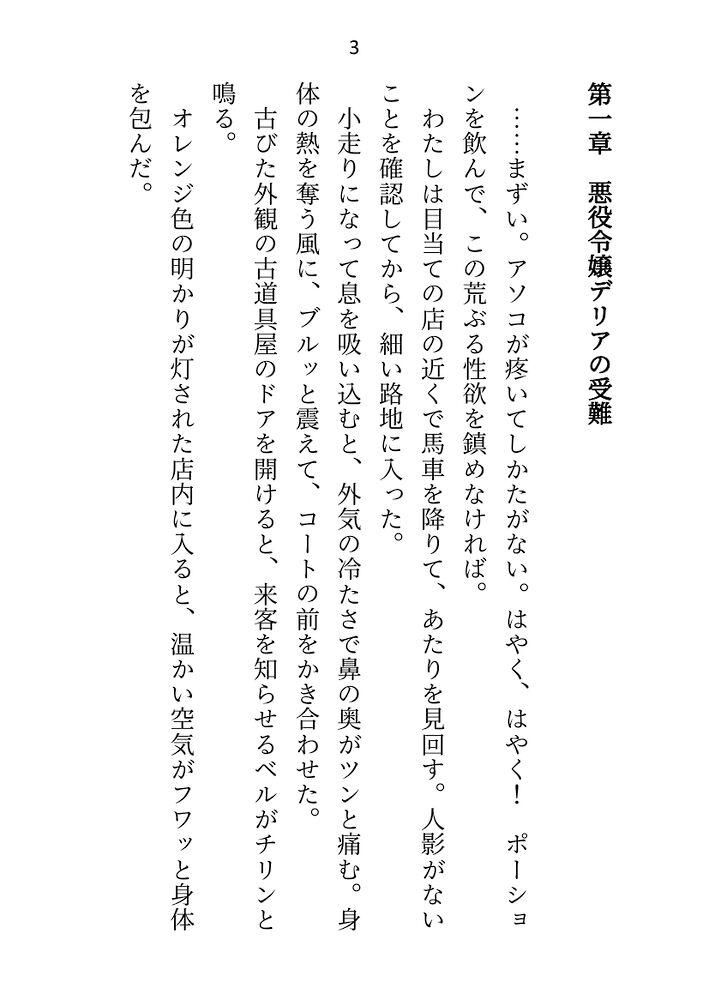 3
第一章　悪役令嬢デリアの受難
……まずい。アソコが疼いてしかたがない。はやく、はやく！　ポーショ
ンを飲んで、この荒ぶる性欲を鎮めなければ。
わたしは目当ての店の近くで馬車を降りて、あたりを見回す。人影がない
ことを確認してから、細い路地に入った。
小走りになって息を吸い込むと、外気の冷たさで鼻の奥がツンと痛む。身
体の熱を奪う風に、ブルッと震えて、コートの前をかき合わせた。
古びた外観の古道具屋のドアを開けると、来客を知らせるベルがチリンと
鳴る。
オレンジ色の明かりが灯された店内に入ると、温かい空気がフワッと身体
を包んだ。